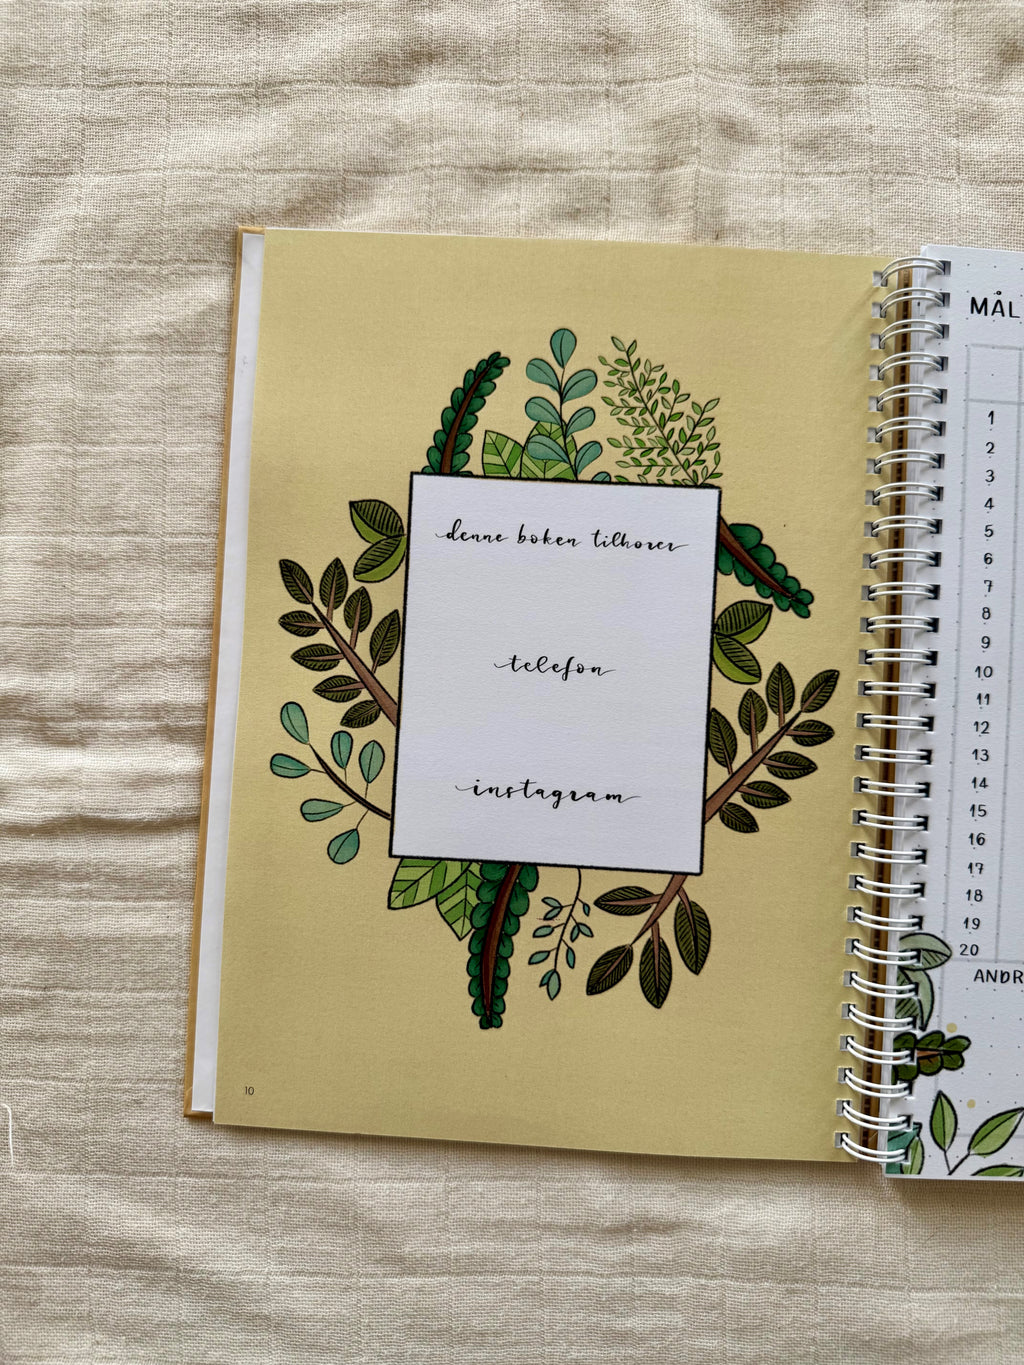 denne boken tilhorer
telefon
instagram
10
MÅL
1
2
3
4
5
6
7
8
9
10
11
12
13
14
15
16
17
18
19
20
ANDR